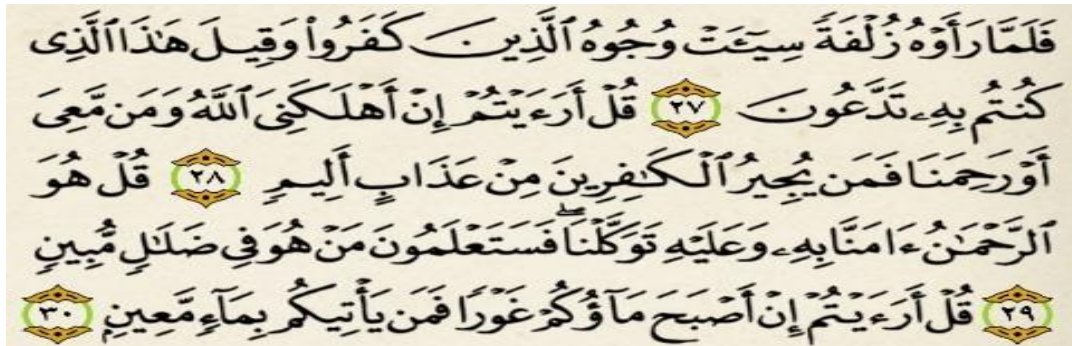 فَلَمَّا رَأَوْهُ زُلْفَةً سِيٓـَٔتْ وُجُوهُ ٱلَّذِينَ كَفَرُوا۟ وَقِيلَ هَٰذَا ٱلَّذِى
كُنتُم بِهِۦ تَدَّعُونَ ٢٧ قُلْ أَرَءَيْتُمْ إِنْ أَهْلَكَنِىَ ٱللَّهُ وَمَن مَّعِىَ
أَوْ رَحِمَنَا فَمَن يُجِيرُ ٱلْكَٰفِرِينَ مِنْ عَذَابٍ أَلِيمٍ ٢٨ قُلْ هُوَ
ٱلرَّحْمَٰنُ ءَامَنَّا بِهِۦ وَعَلَيْهِ تَوَكَّلْنَا ۖ فَسَتَعْلَمُونَ مَنْ هُوَ فِى ضَلَٰلٍ مُّبِينٍ
٢٩ قُلْ أَرَءَيْتُمْ إِنْ أَصْبَحَ مَآؤُكُمْ غَوْرًا فَمَن يَأْتِيكُم بِمَآءٍ مَّعِينٍ ٣٠